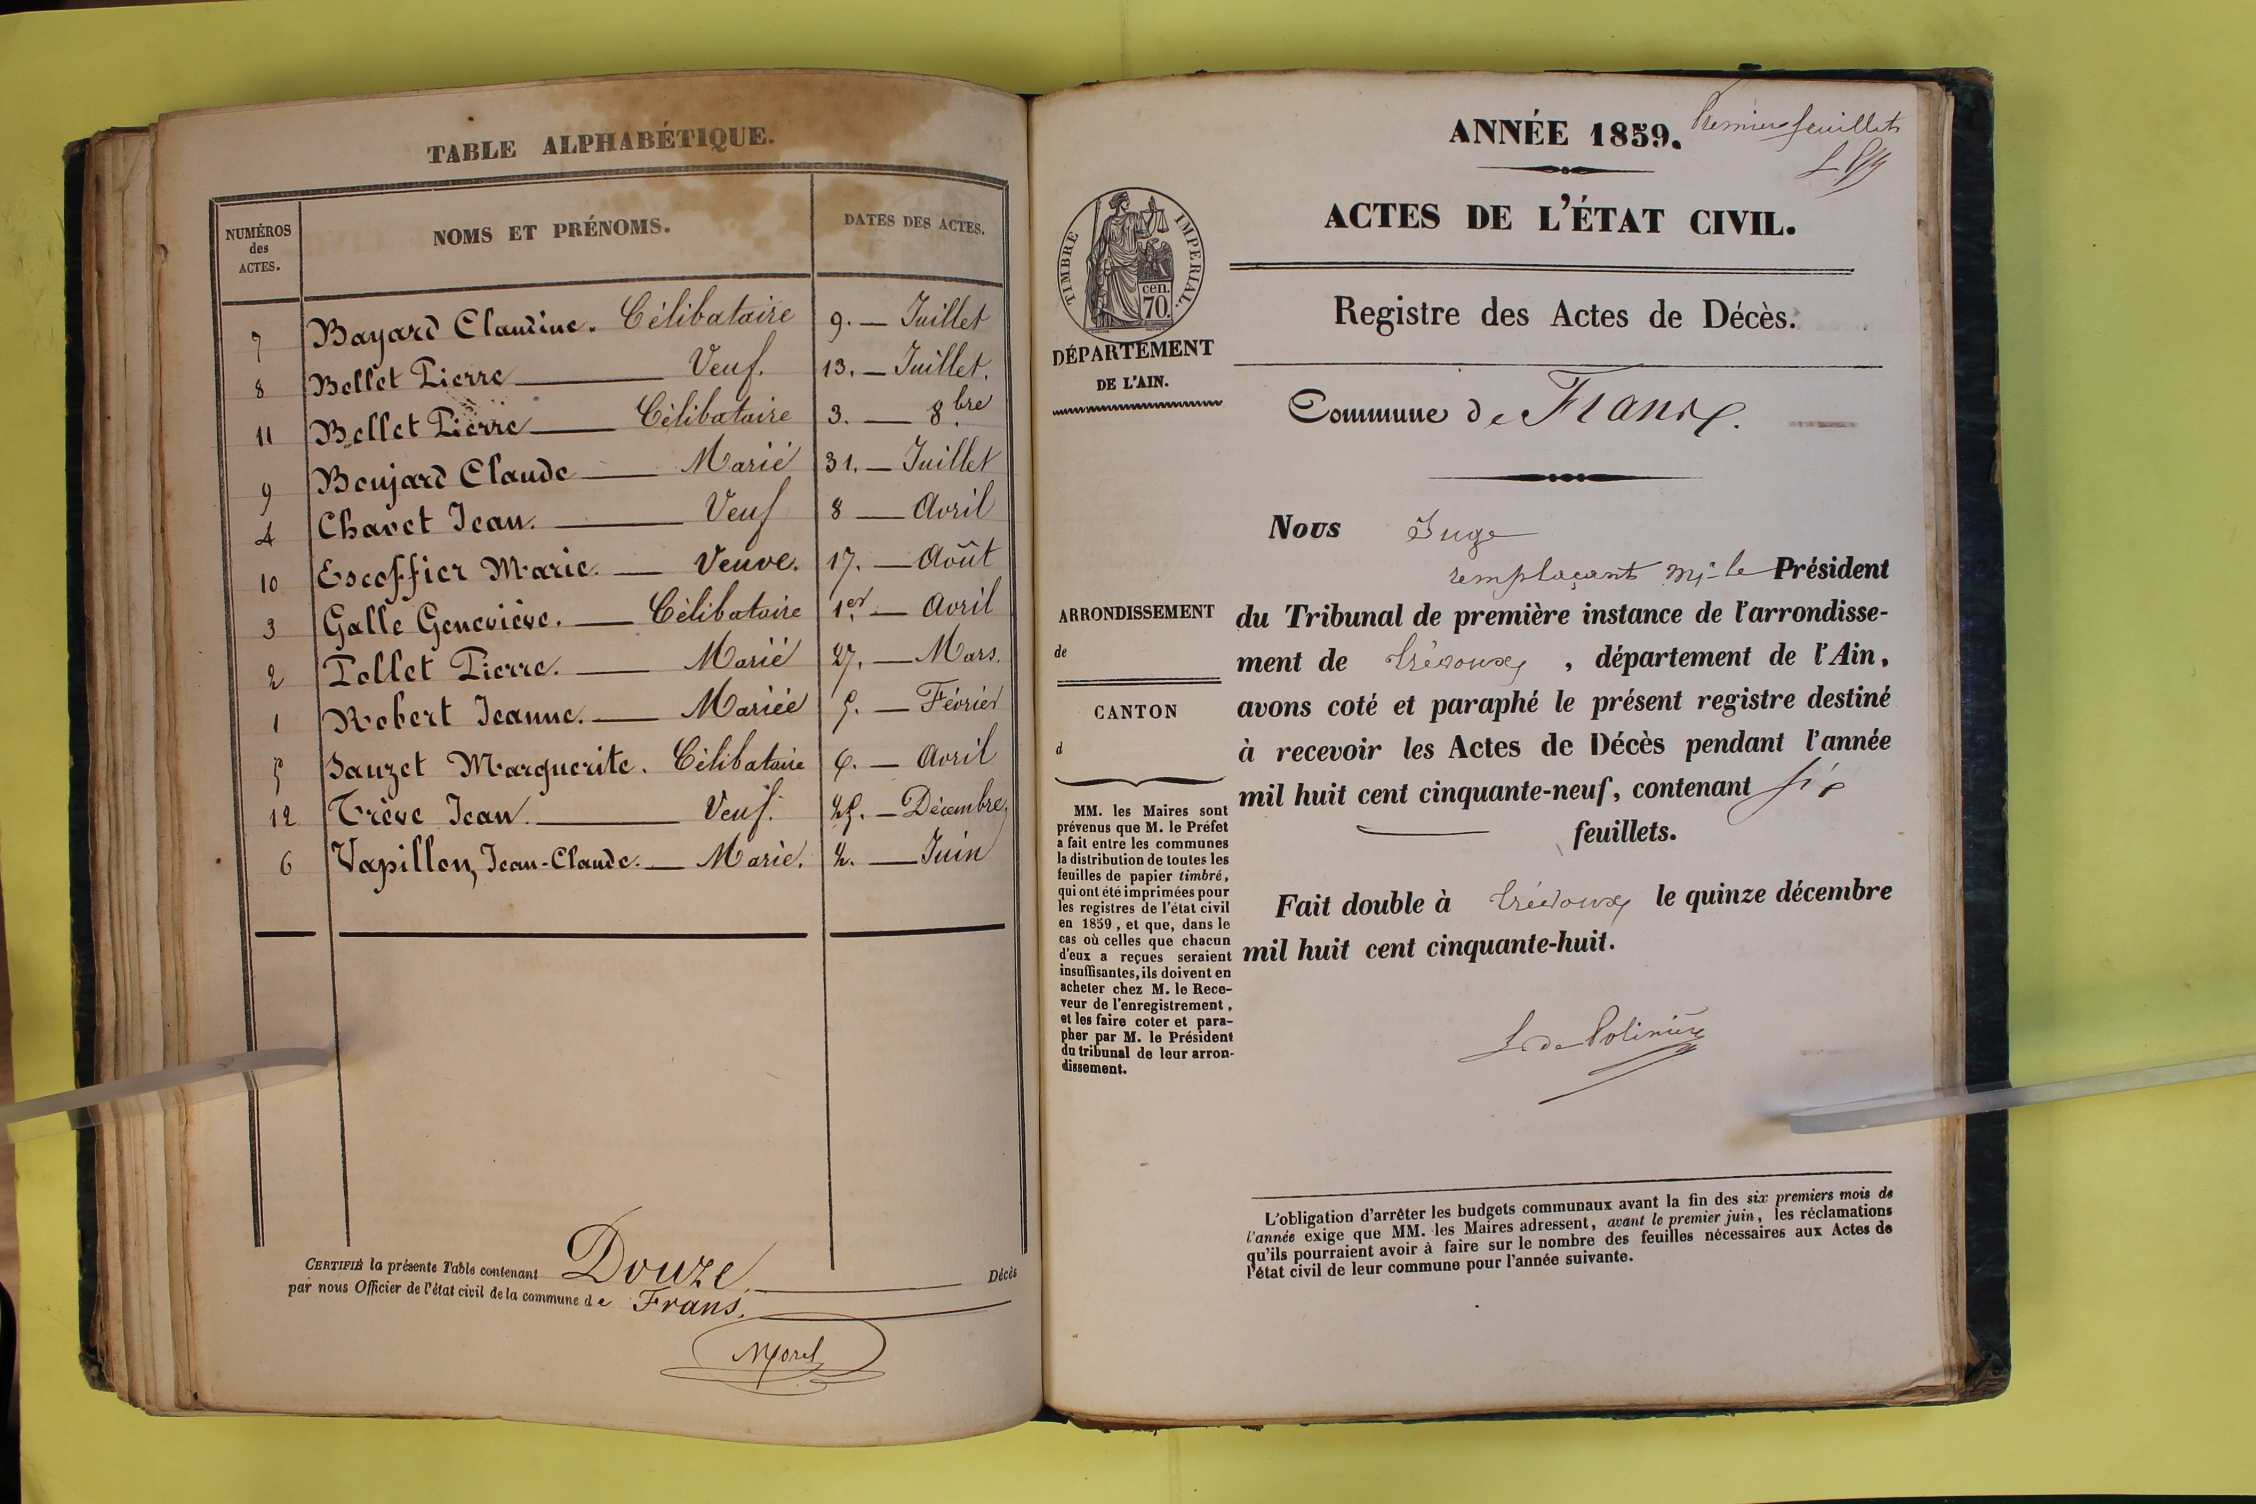 TABLE ALPHABÉTIQUE.
NUMÉROS
des
ACTES.
NOMS ET PRÉNOMS.
DATES DES ACTES.
7 Bayard Claudine. Célibataire 9. — Juillet
8 Bellet Pierre — Veuf. 13. — Juillet.
11 Bellet Pierre — Célibataire 3. — 8.bre
9 Boujard Claude — Marié 31. — Juillet
4 Chavet Jean. — Veuf 8 — Avril
10 Escoffier Marie. — Veuve. 17. — Août
3 Galle Geneviève. — Célibataire 1er. — Avril
2 Pollet Pierre. — Marié 27. — Mars.
1 Robert Jeanne. — Mariée 5. — Février
5 Sauzet Marguerite. Célibataire 9. — Avril
12 Trève Jean. — Veuf. 25. — Décembre.
6 Vapillon, Jean-Claude. — Marié. 2. — Juin
CERTIFIÉ la présente Table contenant Douze — Décès
par nous Officier de l'état civil de la commune de Frans.
Morel
ANNÉE 1859.
Premier feuillet
ACTES DE L'ÉTAT CIVIL.
TIMBRE IMPÉRIAL.
cen.
70.
Registre des Actes de Décès.
DÉPARTEMENT
DE L'AIN.
Commune de Frans.
Nous Juge
remplaçant Mr le Président
du Tribunal de première instance de l'arrondisse-
ment de Trévoux, département de l'Ain,
avons coté et paraphé le présent registre destiné
à recevoir les Actes de Décès pendant l'année
mil huit cent cinquante-neuf, contenant six
feuillets.
Fait double à Trévoux le quinze décembre
mil huit cent cinquante-huit.
L. de Polinière
ARRONDISSEMENT
de
CANTON
d
MM. les Maires sont
prévenus que M. le Préfet
a fait entre les communes
la distribution de toutes les
feuilles de papier timbré,
qui ont été imprimées pour
les registres de l'état civil
en 1859, et que, dans le
cas où celles que chacun
d'eux a reçues seraient
insuffisantes, ils doivent en
acheter chez M. le Rece-
veur de l'enregistrement,
et les faire coter et para-
pher par M. le Président
du tribunal de leur arron-
dissement.
L'obligation d'arrêter les budgets communaux avant la fin des six premiers mois de
l'année exige que MM. les Maires adressent, avant le premier juin, les réclamations
qu'ils pourraient avoir à faire sur le nombre des feuilles nécessaires aux Actes de
l'état civil de leur commune pour l'année suivante.